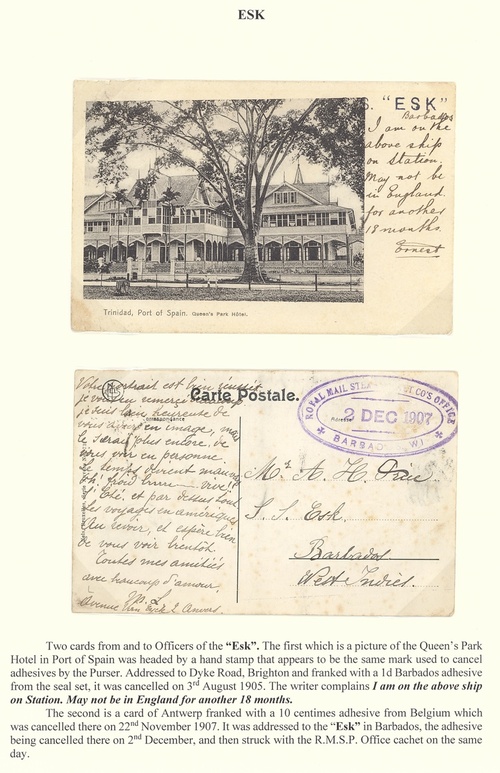 ESK
S. "ESK"
Barbados
I am on the
above ship
on Station.
May not be
in England
for another
18 months.
Ernest
Trinidad, Port of Spain. Queen's Park Hôtel.
Carte Postale.
Correspondance
Adresse
ROYAL MAIL STEAM CO'S OFFICE
2 DEC 1907
BARBADOS W.I.
Votre portrait est bien réussit
je vous en remercie
je suis bien heureuse de
vous avoir en image, mais
le serai plus encore, de
vous voir en personne.
Le temps devient mauvais
froid brume vive
l'Été. et par dessus tout
les voyages en amérique
Au revoir, et espère bien
de vous voir bientôt.
Toutes mes amitiés
avec beaucoup d'amour.
Avenue Van Eyck 2 Anvers.
Mr. A. H.
S. S. Esk.
Barbados
West Indies.
Two cards from and to Officers of the "Esk". The first which is a picture of the Queen's Park
Hotel in Port of Spain was headed by a hand stamp that appears to be the same mark used to cancel
adhesives by the Purser. Addressed to Dyke Road, Brighton and franked with a 1d Barbados adhesive
from the seal set, it was cancelled on 3rd August 1905. The writer complains I am on the above ship
on Station. May not be in England for another 18 months.
The second is a card of Antwerp franked with a 10 centimes adhesive from Belgium which
was cancelled there on 22nd November 1907. It was addressed to the "Esk" in Barbados, the adhesive
being cancelled there on 2nd December, and then struck with the R.M.S.P. Office cachet on the same
day.